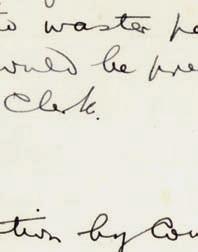 to waster pa
would be pre
Clerk.
ction by Cou